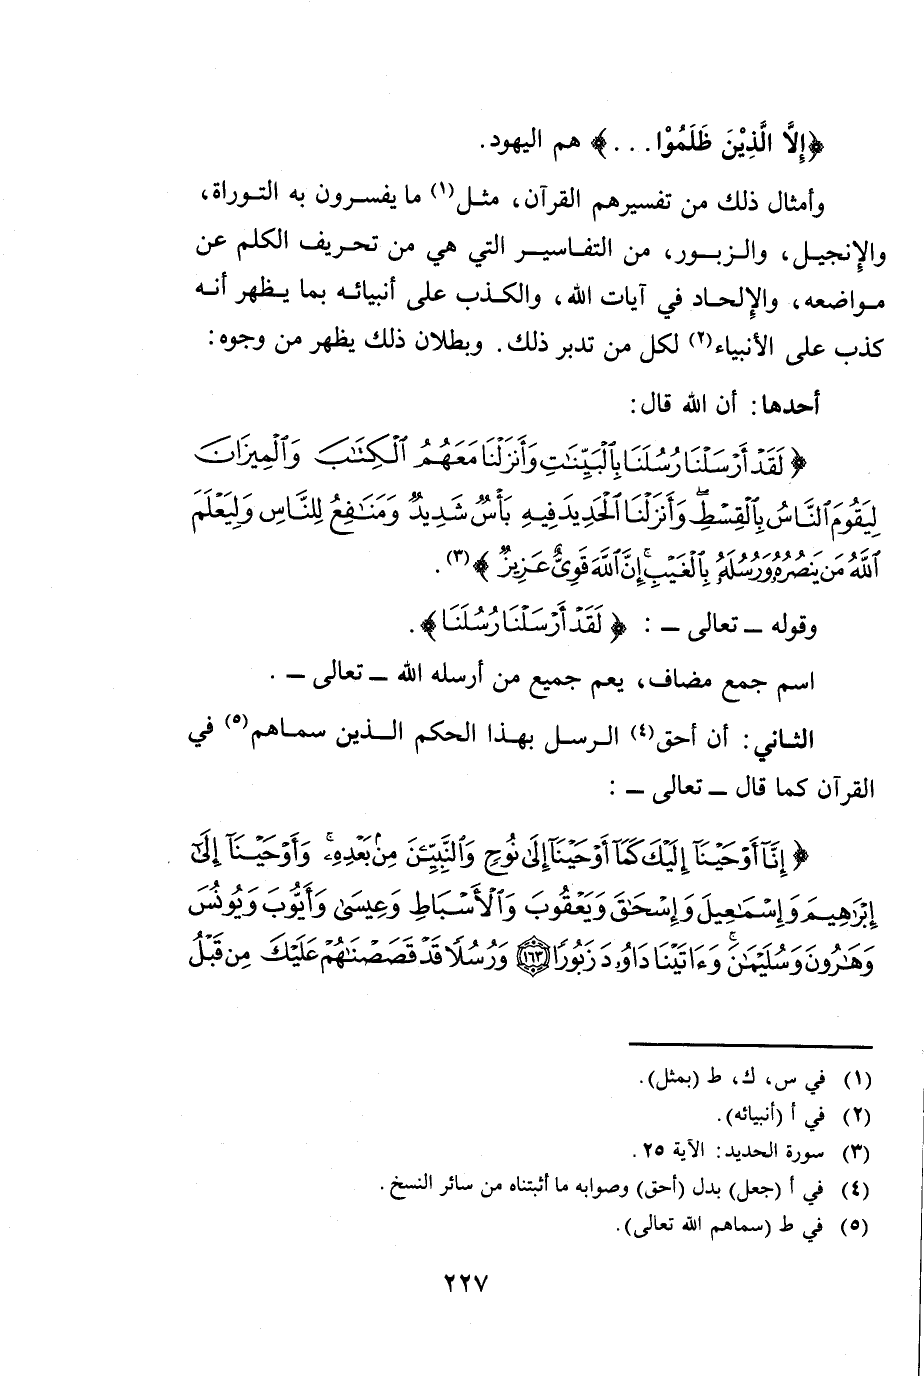 ﴿إِلَّا الَّذِيْنَ ظَلَمُوْا. . .﴾ هم اليهود.
وأمثال ذلك من تفسيرهم القرآن، مثل(١) ما يفسرون به التوراة،
والإنجيل، والزبور، من التفاسير التي هي من تحريف الكلم عن
مواضعه، والإلحاد في آيات الله، والكذب على أنبيائه بما يظهر أنه
كذب على الأنبياء(٢) لكل من تدبر ذلك. وبطلان ذلك يظهر من وجوه:
أحدها: أن الله قال:
﴿ لَقَدْ أَرْسَلْنَا رُسُلَنَا بِالْبَيِّنَٰتِ وَأَنزَلْنَا مَعَهُمُ ٱلْكِتَٰبَ وَٱلْمِيزَانَ
لِيَقُومَ ٱلنَّاسُ بِٱلْقِسْطِۖ وَأَنزَلْنَا ٱلْحَدِيدَ فِيهِ بَأْسٌ شَدِيدٌ وَمَنَٰفِعُ لِلنَّاسِ وَلِيَعْلَمَ
ٱللَّهُ مَن يَنصُرُهُۥ وَرُسُلَهُۥ بِٱلْغَيْبِۚ إِنَّ ٱللَّهَ قَوِيٌّ عَزِيزٌ ﴾(٣).
وقوله ــ تعالى ــ : ﴿ لَقَدْ أَرْسَلْنَا رُسُلَنَا ﴾.
اسم جمع مضاف، يعم جميع من أرسله الله ــ تعالى ــ .
الثاني: أن أحق(٤) الرسل بهذا الحكم الذين سماهم(٥) في
القرآن كما قال ــ تعالى ــ :
﴿ إِنَّآ أَوْحَيْنَآ إِلَيْكَ كَمَآ أَوْحَيْنَآ إِلَىٰ نُوحٍ وَٱلنَّبِيِّـۧنَ مِنۢ بَعْدِهِۦۚ وَأَوْحَيْنَآ إِلَىٰٓ
إِبْرَٰهِيمَ وَإِسْمَٰعِيلَ وَإِسْحَٰقَ وَيَعْقُوبَ وَٱلْأَسْبَاطِ وَعِيسَىٰ وَأَيُّوبَ وَيُونُسَ
وَهَٰرُونَ وَسُلَيْمَٰنَۚ وَءَاتَيْنَا دَاوُۥدَ زَبُورًا ١٦٣ وَرُسُلًا قَدْ قَصَصْنَٰهُمْ عَلَيْكَ مِن قَبْلُ
(١) في س، ك، ط (بمثل).
(٢) في أ (أنبيائه).
(٣) سورة الحديد: الآية ٢٥.
(٤) في أ (جعل) بدل (أحق) وصوابه ما أثبتناه من سائر النسخ.
(٥) في ط (سماهم الله تعالى).
٢٢٧